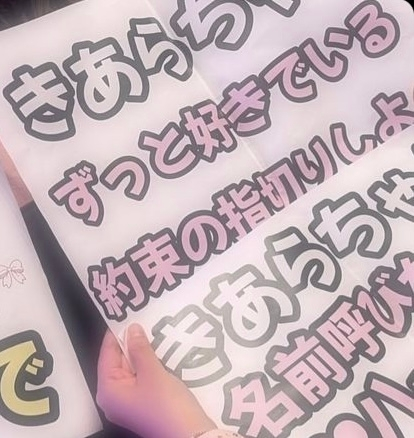 きあらちゃ
ずっと好きでいる
約束の指切りしよ
きあらちゃ
名前呼び
で